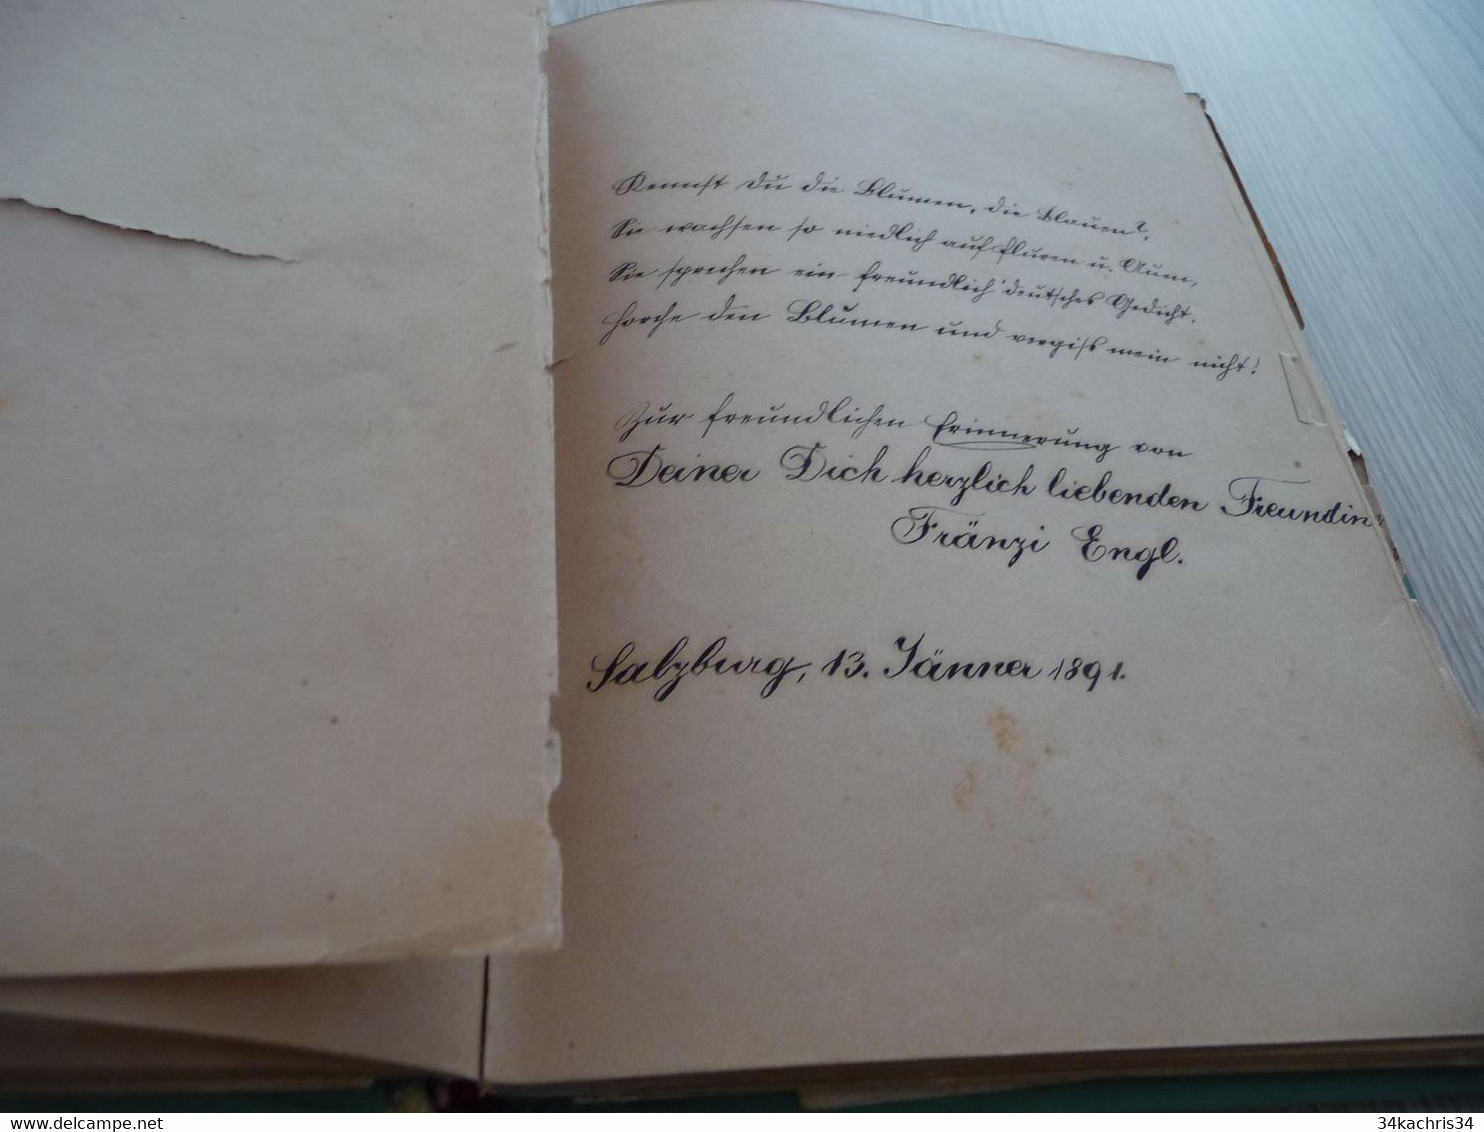 Kennst Du die Blumen, die Blauen?,
Sie wachsen so niedlich auf Fluren u. Auen,
Sie sprechen ein freundlich deutsches Gedicht,
Horche den Blumen und vergiss mein nicht!
Zur freundlichen Erinnerung von
Deiner Dich herzlich liebenden Freundin
Fränzi Engl.
Salzburg, 13. Jänner 1891.
delcampe.net
34kachris34